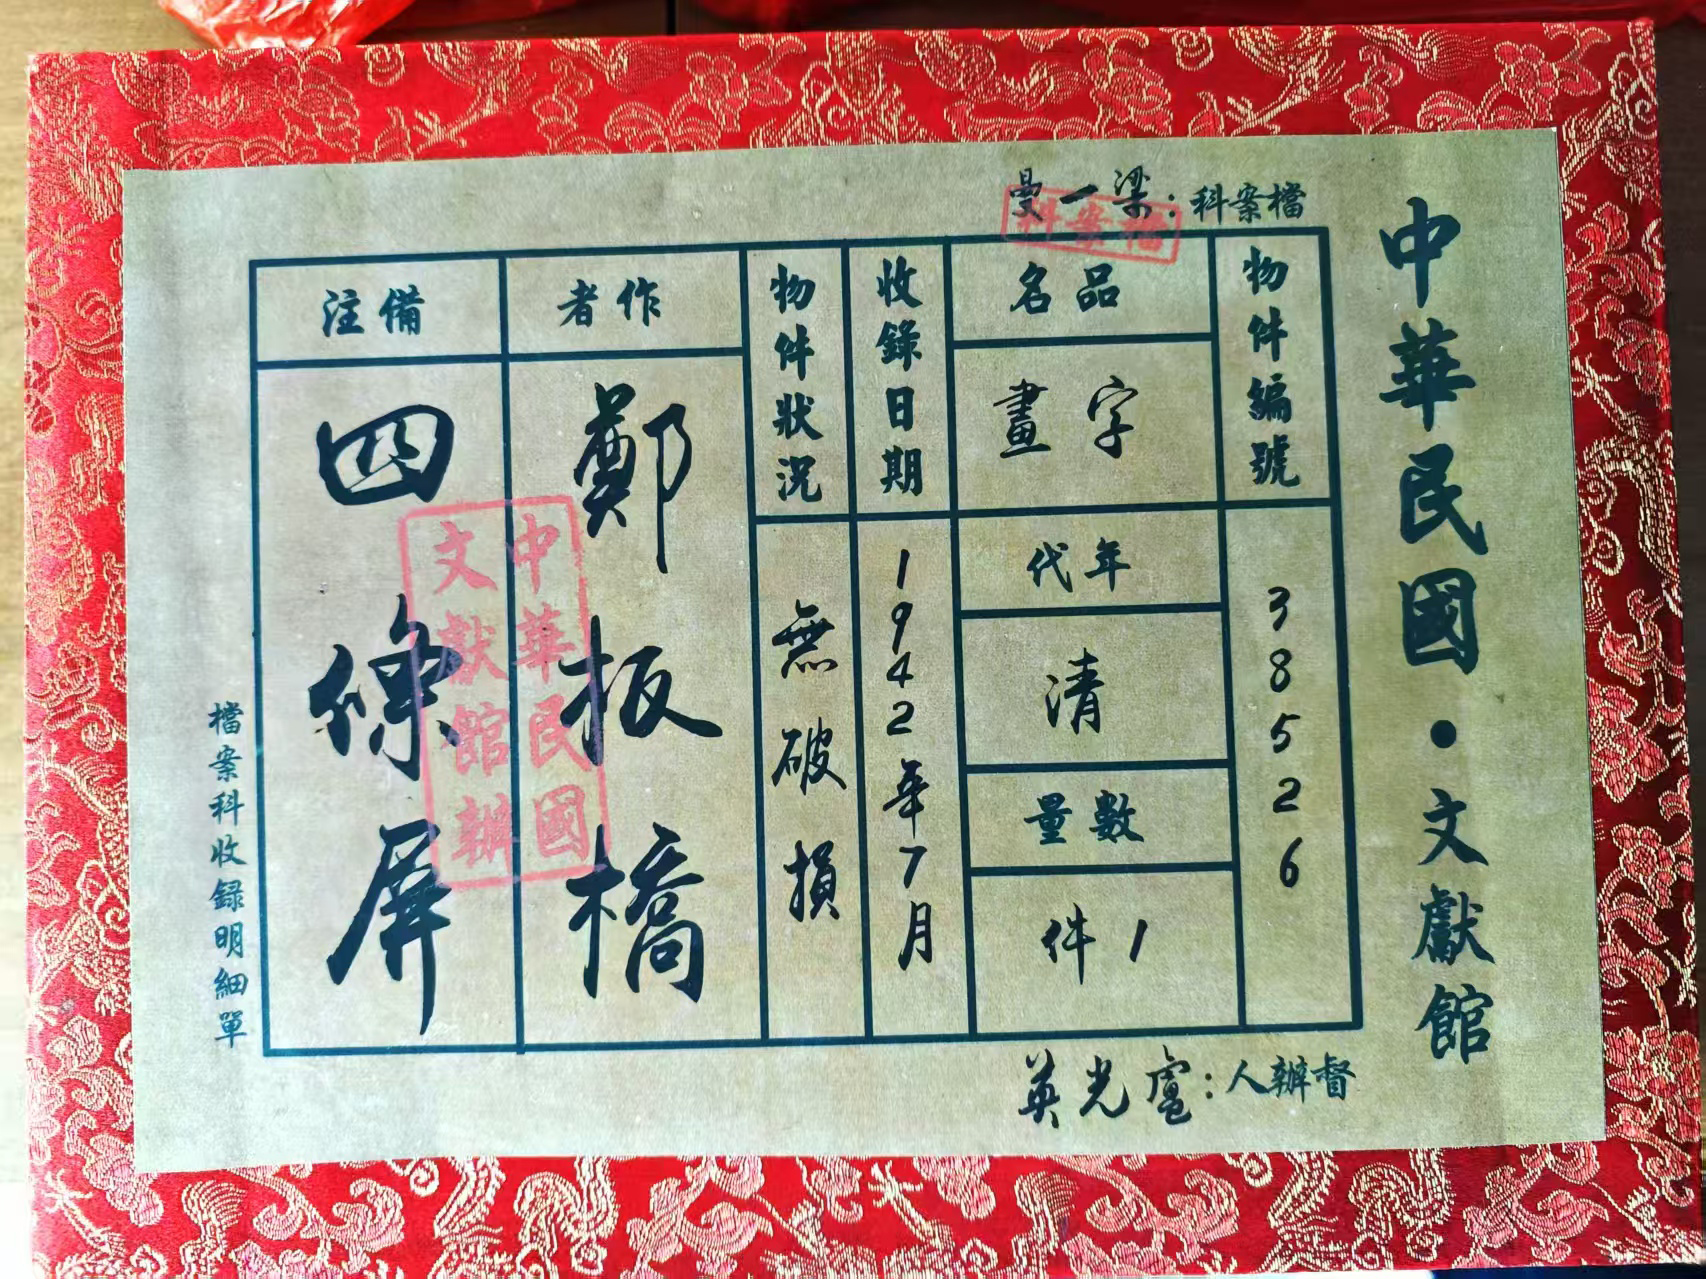 中華民國·文獻館
檔案科:梁一曼
檔案科
物件編號
38526
品名
字畫
年代
清
數量
1件
收錄日期
1942年7月
物件狀況
無破損
作者
鄭板橋
備注
四條屏
中華民國
文獻館辦
督辦人:盧光英
檔案科收録明細單